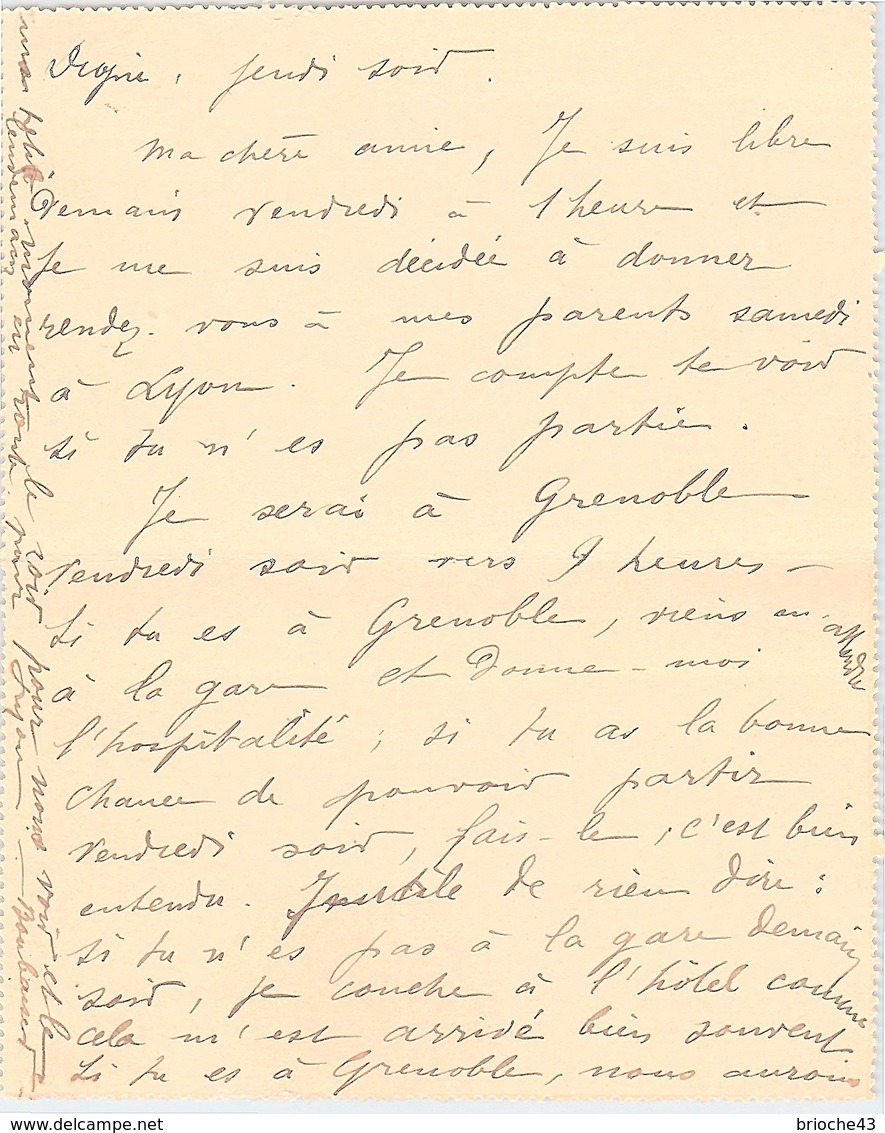 Digne, jeudi soir.
Ma chère amie, Je suis libre
Demain vendredi à 1 heure et
Je me suis décidée à donner
rendez-vous à mes parents samedi
à Lyon. Je compte te voir
si tu n'es pas partie.
Je serai à Grenoble
vendredi soir vers 9 heures -
Si tu es à Grenoble, viens m'attendre
à la gare et Donne-moi
l'hospitalité ; si tu as la bonne
chance de pouvoir partir
vendredi soir, fais-le, c'est bien
entendu. Inutile de rien dire :
si tu n'es pas à la gare Demain
soir, je couche à l'hôtel comme
cela m'est arrivé bien souvent
Si tu es à Grenoble, nous aurons
un petit moment le soir pour nous voir et le
lendemain en route pour Lyon. -